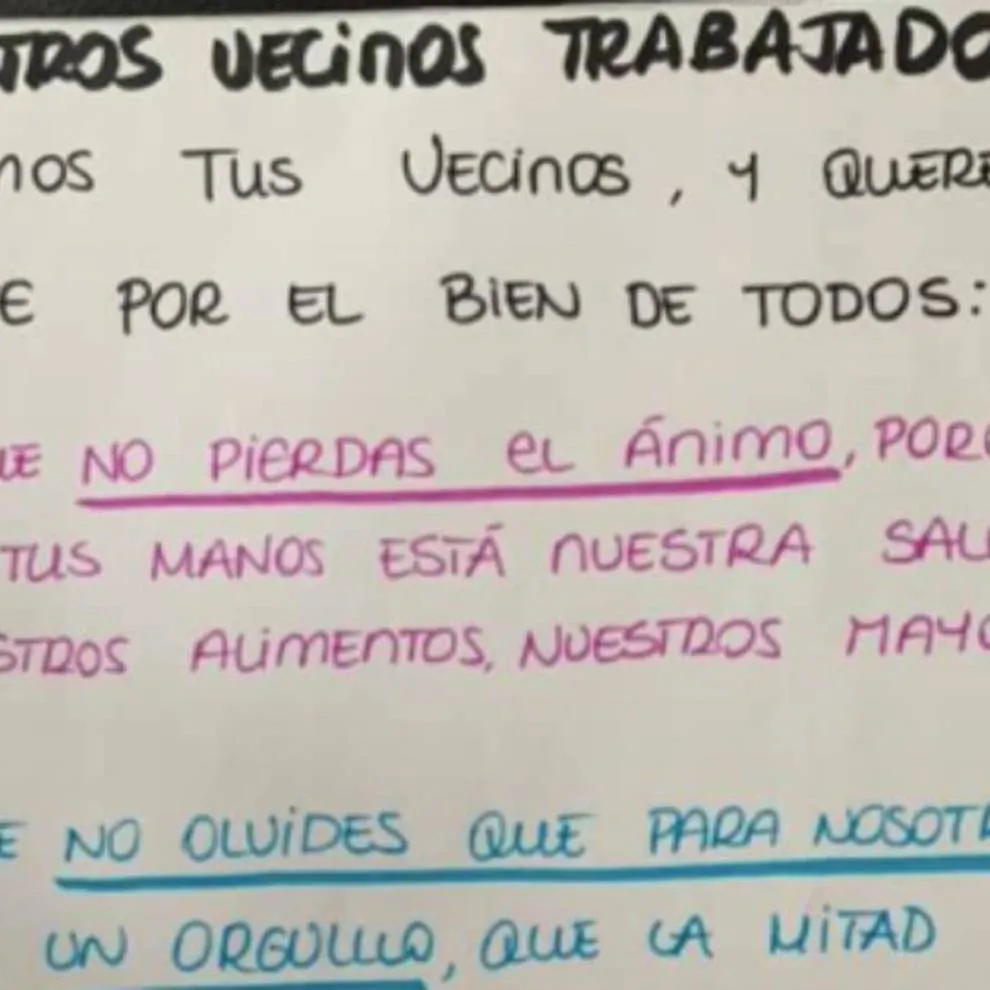 TROS VECINOS TRABAJADO
MOS TUS VECINOS, Y QUERE
E POR EL BIEN DE TODOS:
UE NO PIERDAS EL ÁNIMO, POR
TUS MANOS ESTÁ NUESTRA SALU
STROS ALIMENTOS, NUESTROS MAYO
E NO OLVIDES QUE PARA NOSOTR
UN ORGULLO, QUE LA MITAD